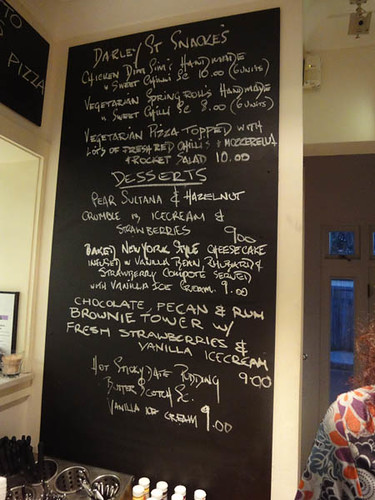 TO
PIZZA
DARLEY ST SNACKE'S
CHICKEN DIM SIM'S HANDMADE
W SWEET CHILLI SC 10.00 (6 UNITS)
VEGETARIAN SPRING ROLLS HANDMADE
W SWEET CHILLI SC 8.00 (6 UNITS)
VEGETARIAN PIZZA TOPPED WITH
LOTS OF FRESH RED CHILLIS & MOZZERELLA
& ROCKET SALAD 10.00
DESSERTS
PEAR SULTANA & HAZELNUT
CRUMBLE W ICECREAM &
STRAWBERRIES
9.00
BAKED NEW YORK STYLE CHEESECAKE
INFUSED W VANILLA BEAN, RHUBARB &
STRAWBERRY COMPOTE SERVED
WITH VANILLA ICE CREAM. 9.00
CHOCOLATE, PECAN & RUM
BROWNIE TOWER W/
FRESH STRAWBERRIES &
VANILLA ICECREAM
9.00
HOT STICKY DATE PUDDING
BUTTER SCOTCH SC.
&
VANILLA ICE CREAM 9.00